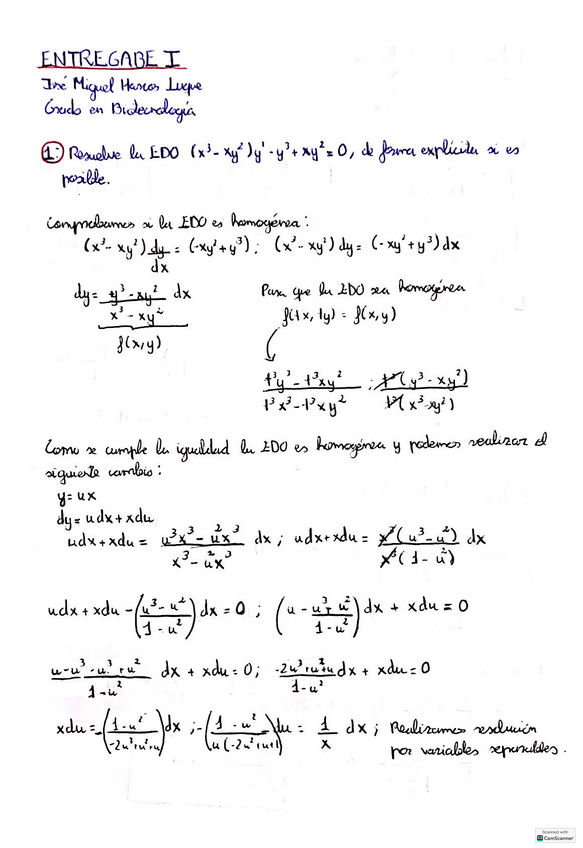 ENTREGABE I
José Miguel Marcos Luque
Grado en Biotecnología
1: Resuelve la EDO (x³ - xy²)y' - y³ + xy² = 0, de forma explícita si es
posible.
Comprobamos si la EDO es homogénea:
(x³ - xy²) dy/dx = (-xy² + y³); (x³ - xy²) dy = (-xy² + y³) dx
dy = (y³ - xy²)/(x³ - xy²) dx
f(x,y)
Para que la EDO sea homogénea
f(tx, ty) = f(x,y)
(t³y³ - t³xy²)/(t³x³ - t³xy²) ; t³(y³ - xy²)/t³(x³ - xy²)
Como se cumple la igualdad la EDO es homogénea y podemos realizar el
siguiente cambio:
y = ux
dy = udx + xdu
udx + xdu = (u³x³ - u²x³)/(x³ - u²x³) dx ; udx + xdu = x³(u³ - u²)/x³(1 - u²) dx
udx + xdu - ((u³ - u²)/(1 - u²)) dx = 0 ; (u - (u³ + u²)/(1 - u²)) dx + xdu = 0
(u - u³ - u³ + u²)/(1 - u²) dx + xdu = 0; (-2u³ + u² + u)/(1 - u²) dx + xdu = 0
xdu = -((1 - u²)/(-2u³ + u² + u)) dx ; -((1 - u²)/(u(-2u² + u + 1))) du = 1/x dx ; Realizamos resolución
por variables separables.
Scanned with
CamScanner